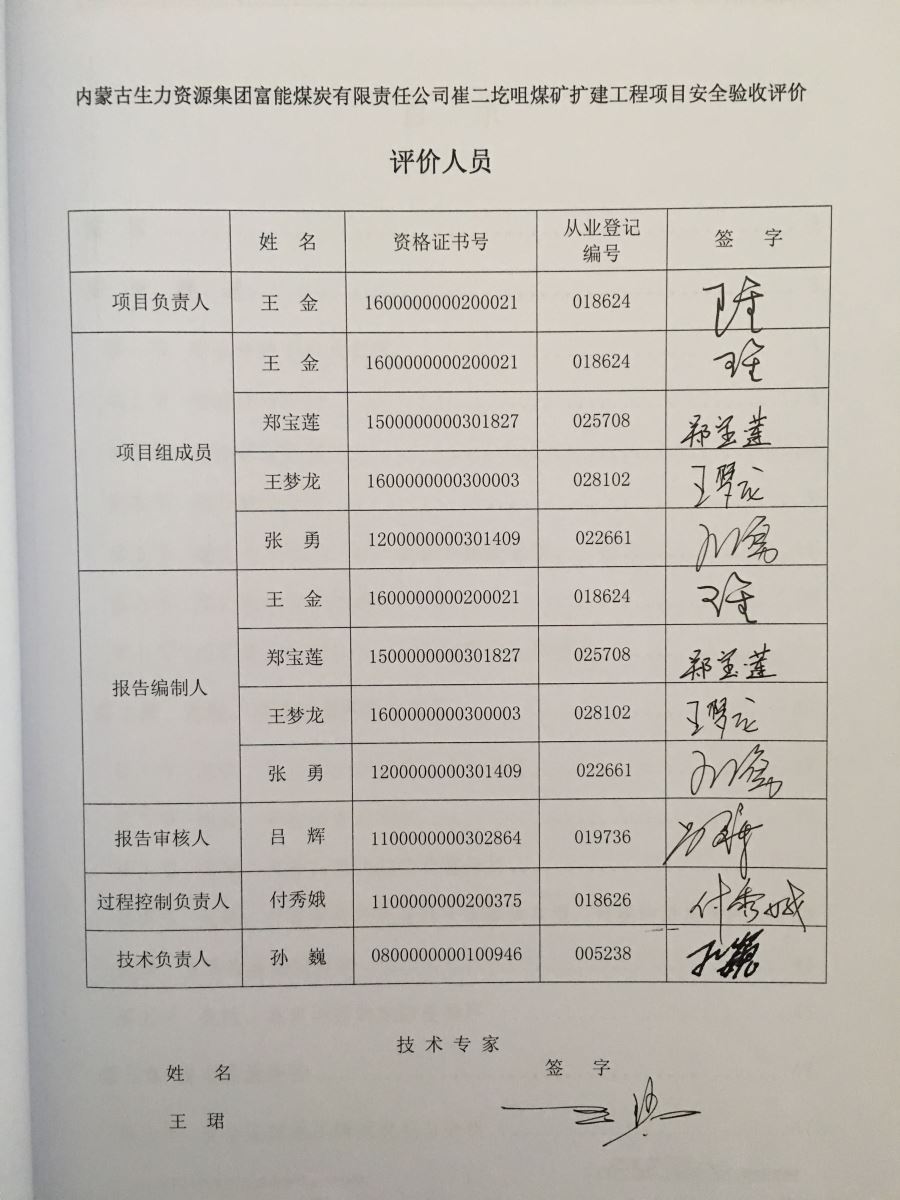 内蒙古生力资源集团富能煤炭有限责任公司崔二圪咀煤矿扩建工程项目安全验收评价
评价人员
姓 名 资格证书号 从业登记编号 签 字
项目负责人 王 金 1600000000200021 018624 王金
项目组成员 王 金 1600000000200021 018624 王金
郑宝莲 1500000000301827 025708 郑宝莲
王梦龙 1600000000300003 028102 王梦龙
张 勇 1200000000301409 022661 张勇
报告编制人 王 金 1600000000200021 018624 王金
郑宝莲 1500000000301827 025708 郑宝莲
王梦龙 1600000000300003 028102 王梦龙
张 勇 1200000000301409 022661 张勇
报告审核人 吕 辉 1100000000302864 019736 吕辉
过程控制负责人 付秀娥 1100000000200375 018626 付秀娥
技术负责人 孙 巍 0800000000100946 005238 孙巍
技 术 专 家
姓 名 签 字
王 珺 王珺